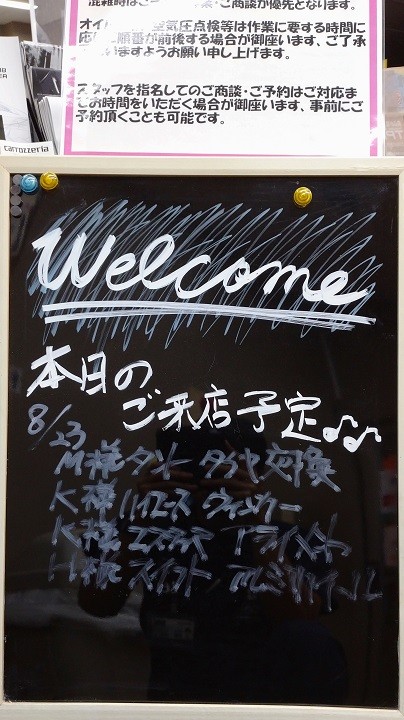 混雑時はご予約・ご商談が優先となります。
オイル 空気圧点検等は作業に要する時間に
応じ順番が前後する場合が御座います、ご了承
いますようお願い申し上げます。
スタッフを指名してのご商談・ご予約はご対応ま
でお時間をいただく場合が御座います、事前にご
予約頂くことも可能です。
carrozzeria
Welcome
本日の
ご来店予定♫♪
8/23
M様 タント タイヤ交換
K様 ハイエース ウィンカー
K様 エスティマ アライメント
H様 スイフト アルミホイール